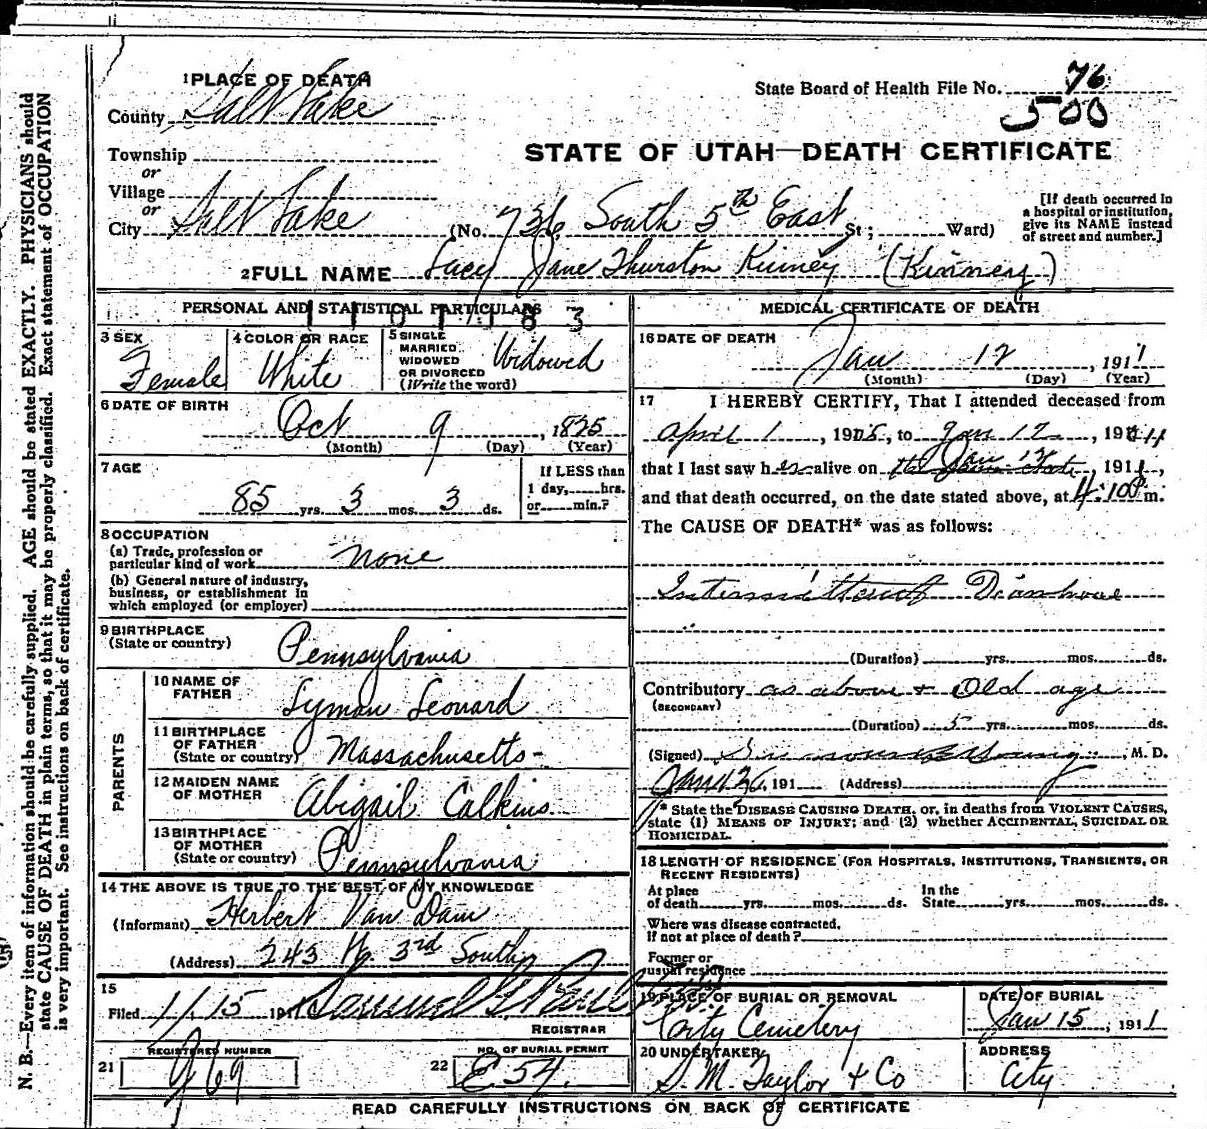 1 PLACE OF DEATH
State Board of Health File No. 76
500
County Salt Lake
Township
or
Village
or
STATE OF UTAH—DEATH CERTIFICATE
City Salt Lake (No. 736 South 5th East St; Ward)
[If death occurred in a hospital or institution, give its NAME instead of street and number.]
2 FULL NAME Lucy Jane Thurston Kinney (Kinney)
PERSONAL AND STATISTICAL PARTICULARS
3 SEX
Female
4 COLOR OR RACE
White
5 SINGLE
MARRIED
WIDOWED
OR DIVORCED
(Write the word)
Widowed
6 DATE OF BIRTH
Oct 9, 1825
(Month) (Day) (Year)
7 AGE
85 yrs. 3 mos. 3 ds.
If LESS than
1 day, hrs.
or min.?
8 OCCUPATION
(a) Trade, profession or
particular kind of work none
(b) General nature of industry,
business, or establishment in
which employed (or employer)
9 BIRTHPLACE
(State or country) Pennsylvania
PARENTS
10 NAME OF
FATHER Lyman Leonard
11 BIRTHPLACE
OF FATHER
(State or country) Massachusetts-
12 MAIDEN NAME
OF MOTHER Abigail Calkins
13 BIRTHPLACE
OF MOTHER
(State or country) Pennsylvania
14 THE ABOVE IS TRUE TO THE BEST OF MY KNOWLEDGE
(Informant) Herbert Van Dam
(Address) 243 W 3rd South
15
Filed 1/15 191
REGISTRAR
21 REGISTERED NUMBER
J 69
22 NO. OF BURIAL PERMIT
E 54.
MEDICAL CERTIFICATE OF DEATH
16 DATE OF DEATH
Jan 12, 1911
(Month) (Day) (Year)
17 I HEREBY CERTIFY, That I attended deceased from
April 1, 190, to Jan 12, 1911
that I last saw her alive on Jan 12, 1911,
and that death occurred, on the date stated above, at 4:10 P m.
The CAUSE OF DEATH* was as follows:
Intermittent Diarrhoea
(Duration) yrs. mos. ds.
Contributory as above + Old age
(SECONDARY)
(Duration) 5 yrs. mos. ds.
(Signed) Young, M. D.
191 (Address)
* State the DISEASE CAUSING DEATH, or, in deaths from VIOLENT CAUSES,
state (1) MEANS OF INJURY; and (2) whether ACCIDENTAL, SUICIDAL OR
HOMICIDAL.
18 LENGTH OF RESIDENCE (FOR HOSPITALS, INSTITUTIONS, TRANSIENTS, OR
RECENT RESIDENTS)
At place of death yrs. mos. ds. In the State yrs. mos. ds.
Where was disease contracted,
If not at place of death?
Former or
usual residence
19 PLACE OF BURIAL OR REMOVAL
City Cemetery
DATE OF BURIAL
Jan 15, 1911
20 UNDERTAKER
S. M. Taylor & Co
ADDRESS
City
READ CAREFULLY INSTRUCTIONS ON BACK OF CERTIFICATE
N. B.—Every item of information should be carefully supplied. AGE should be stated EXACTLY. PHYSICIANS should
state CAUSE OF DEATH in plain terms, so that it may be properly classified. Exact statement of OCCUPATION
is very important. See instructions on back of certificate.